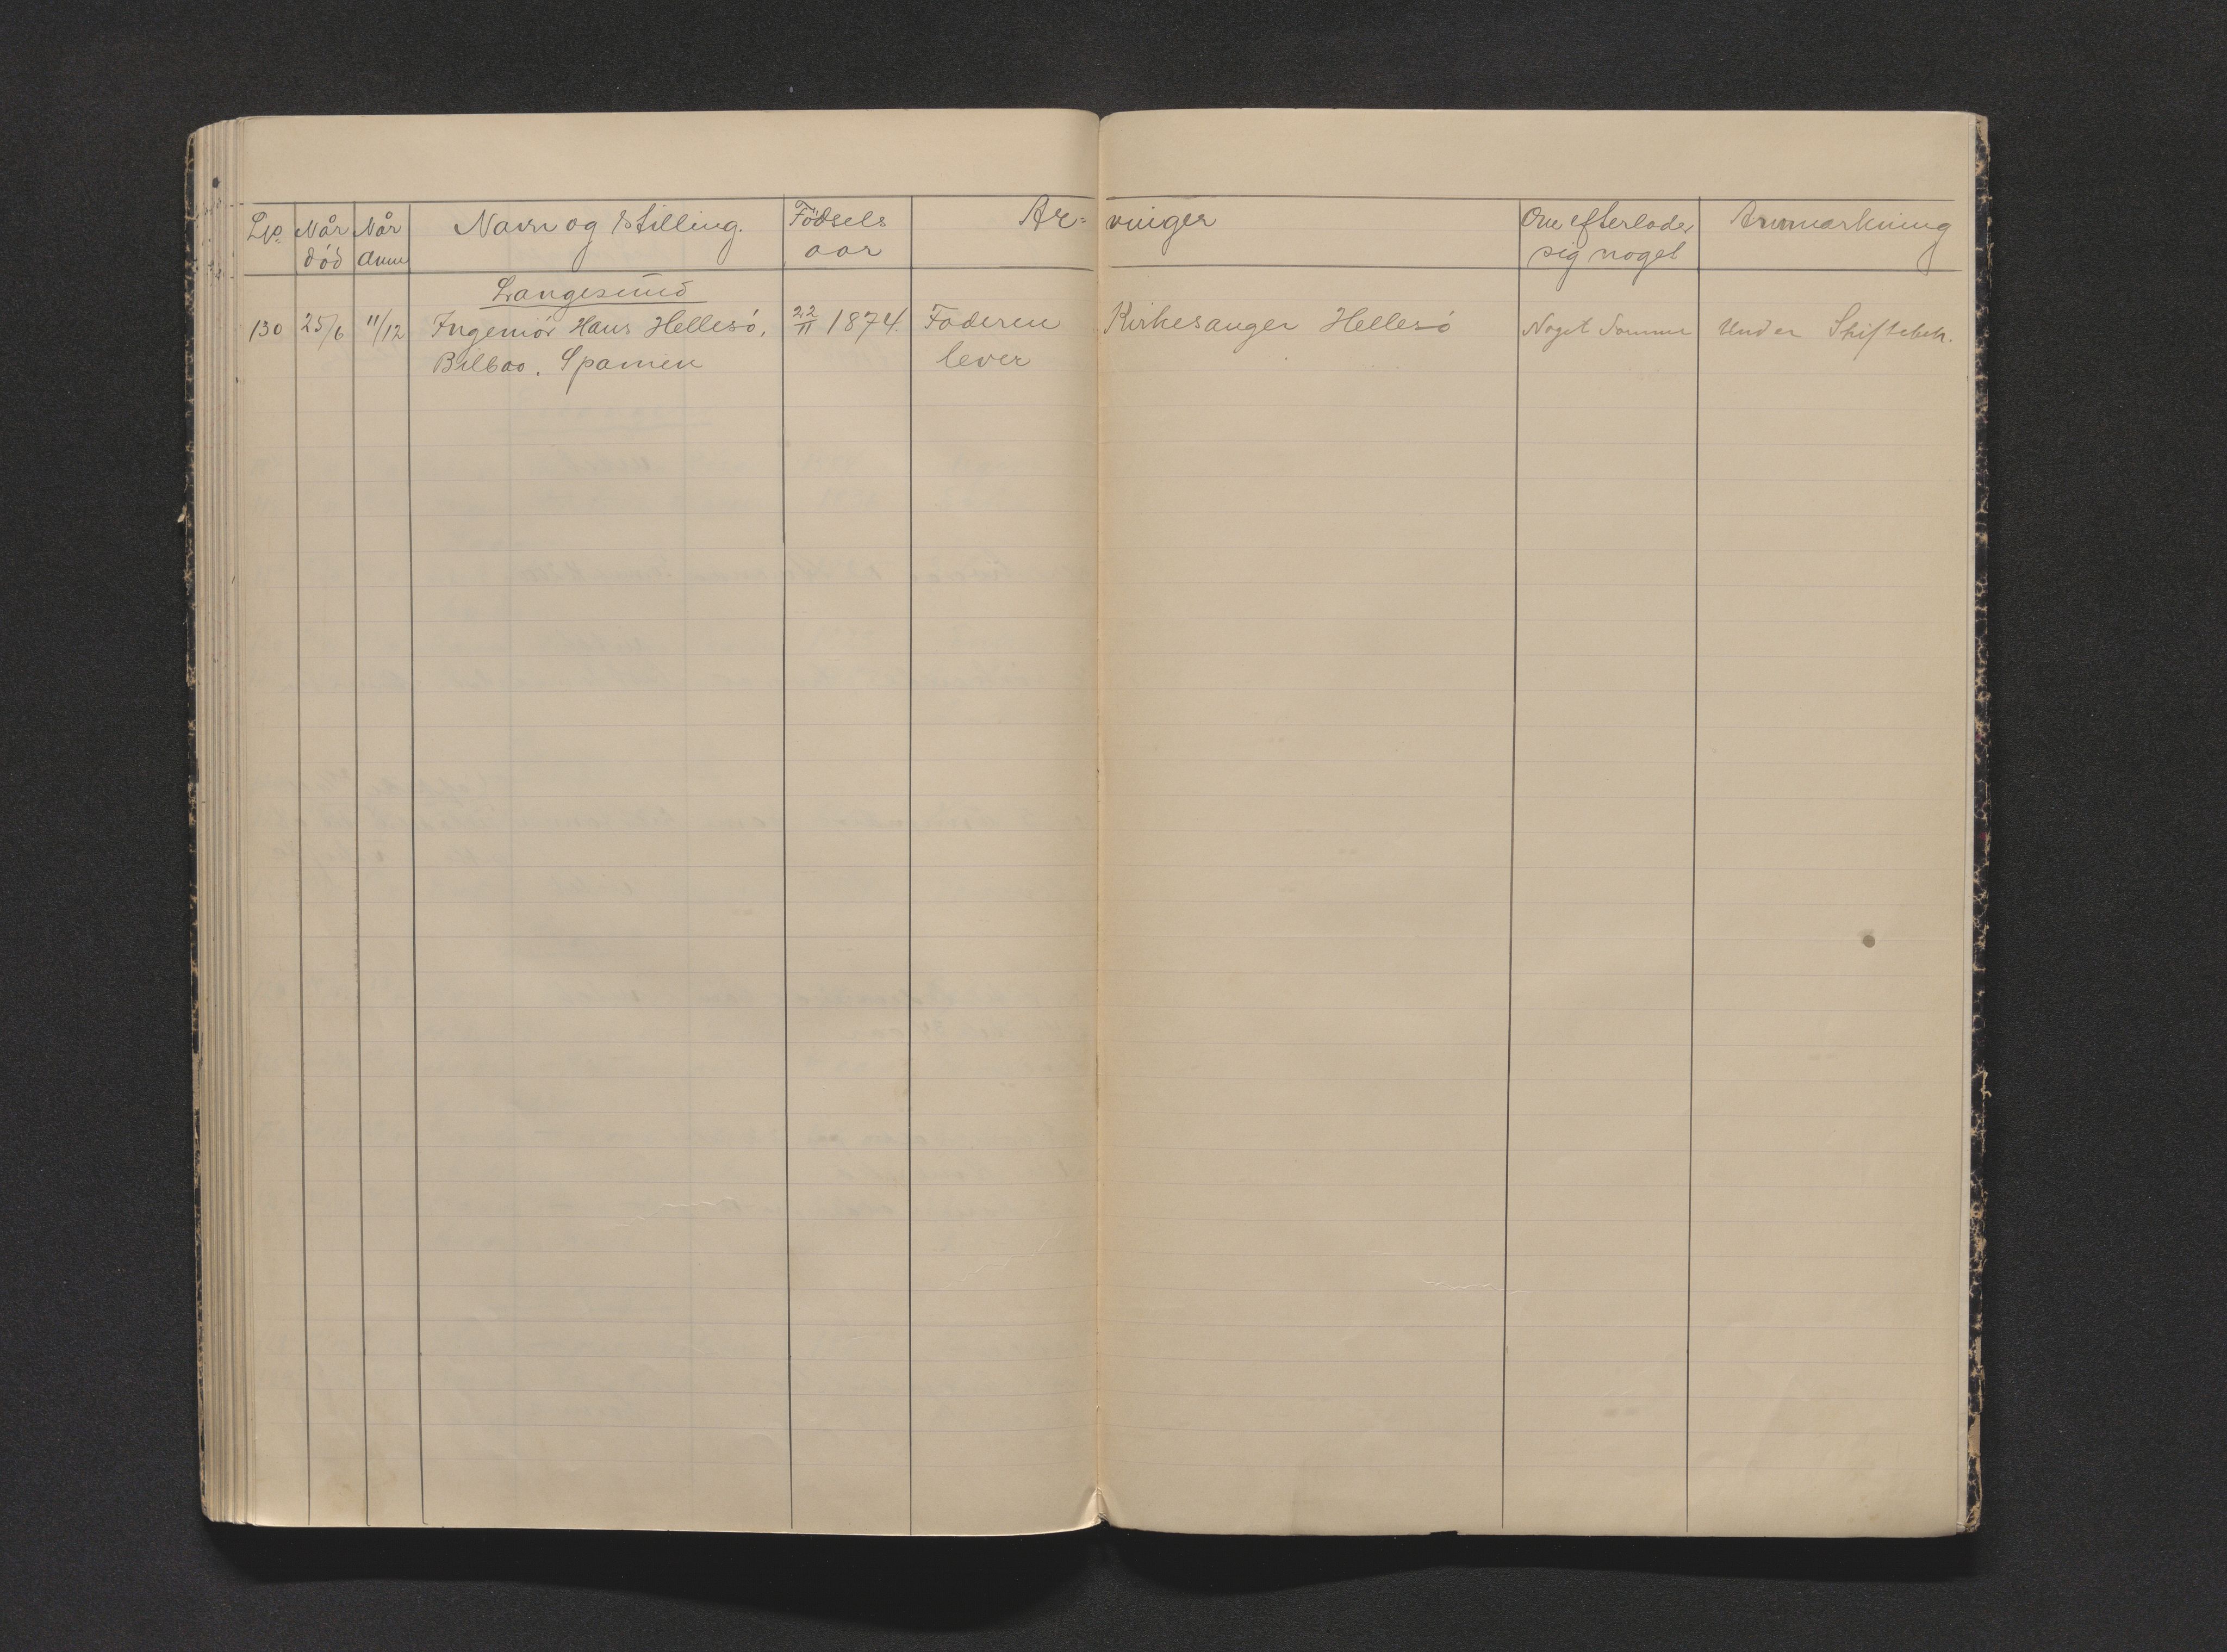 Lp. Når død Når Anm Navn og Stilling. Födsels aar Ar= vinger Om efterlader sig noget Anmærkning
Langesund
130 25/6 11/12 Ingeniör Hans Hellesó, 22/11 1874. Faderen Kirkesanger Hellesó Noget Somme Under Skiftebeh.
Bilbao. Spanien lever